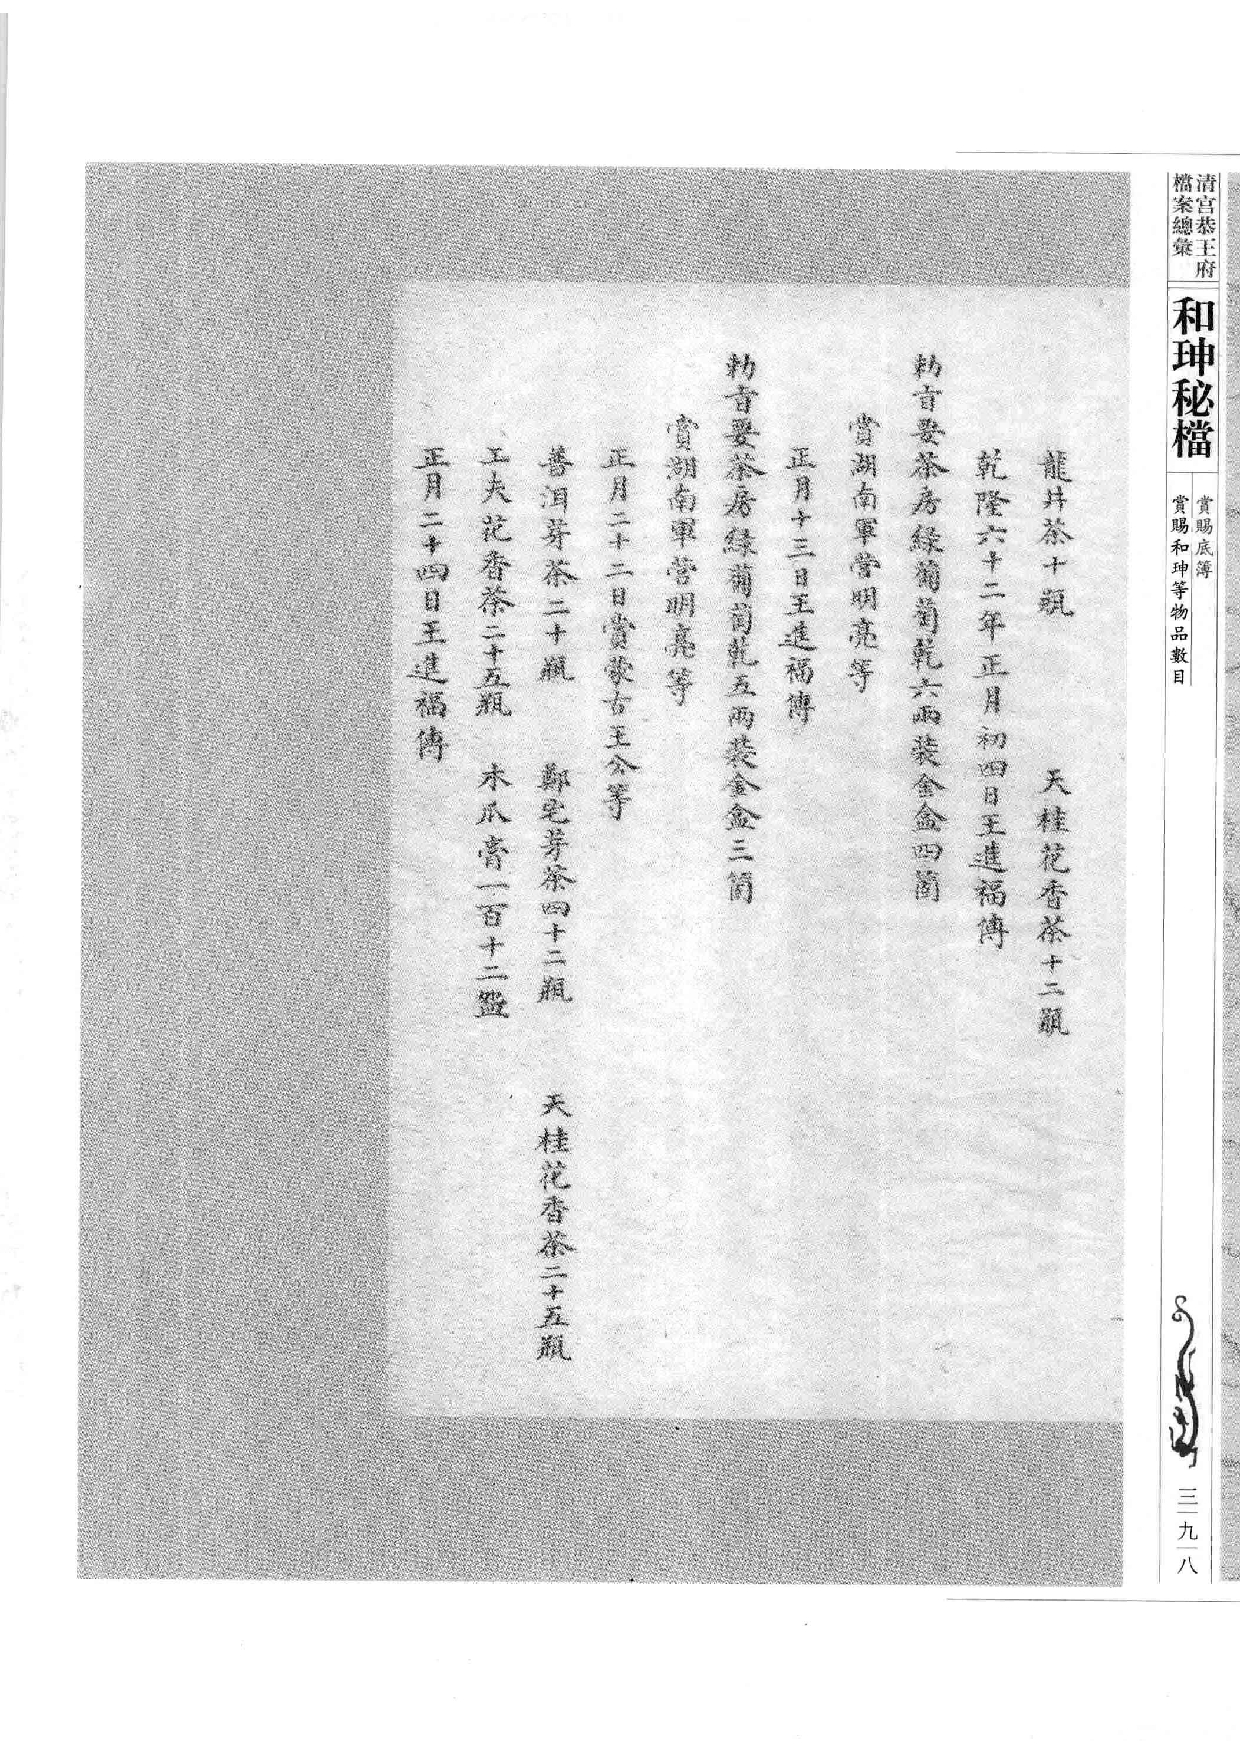 清宮恭王府
檔案總彙
和珅秘檔
賞賜底簿
賞賜和珅等物品數目
三九八
龍井茶十瓶　天桂花香茶十二瓶
乾隆六十二年正月初四日王進福傳
勅旨要茶房綠葡萄乾六兩裝金盒四箇
賞湖南軍營明亮等
正月十三日王進福傳
勅旨要茶房綠葡萄乾五兩裝金盒三箇
賞湖南軍營明亮等
正月二十二日賞蒙古王公等
普洱芽茶二十瓶　鄭宅芽茶四十二瓶　天桂花香茶二十五瓶
工夫花香茶二十五瓶　木瓜膏一百十二盌
正月二十四日王進福傳